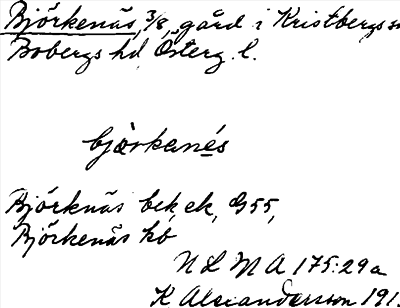 Björkenäs, 3/8, gård i Kristbergs sn
Bobergs hd Österg. l.
bjò̀rkanés
Björknäs bek, ek, G55,
Björkenäs hb
N L M A 175:29a
K Alexandersson 191